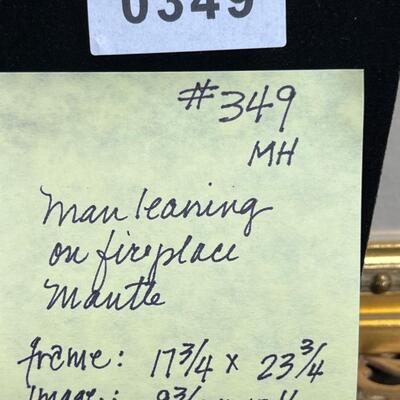 0349
#349
MH
Man leaning
on fireplace
Mantle
frame: 17 3/4 x 23 3/4
Image: